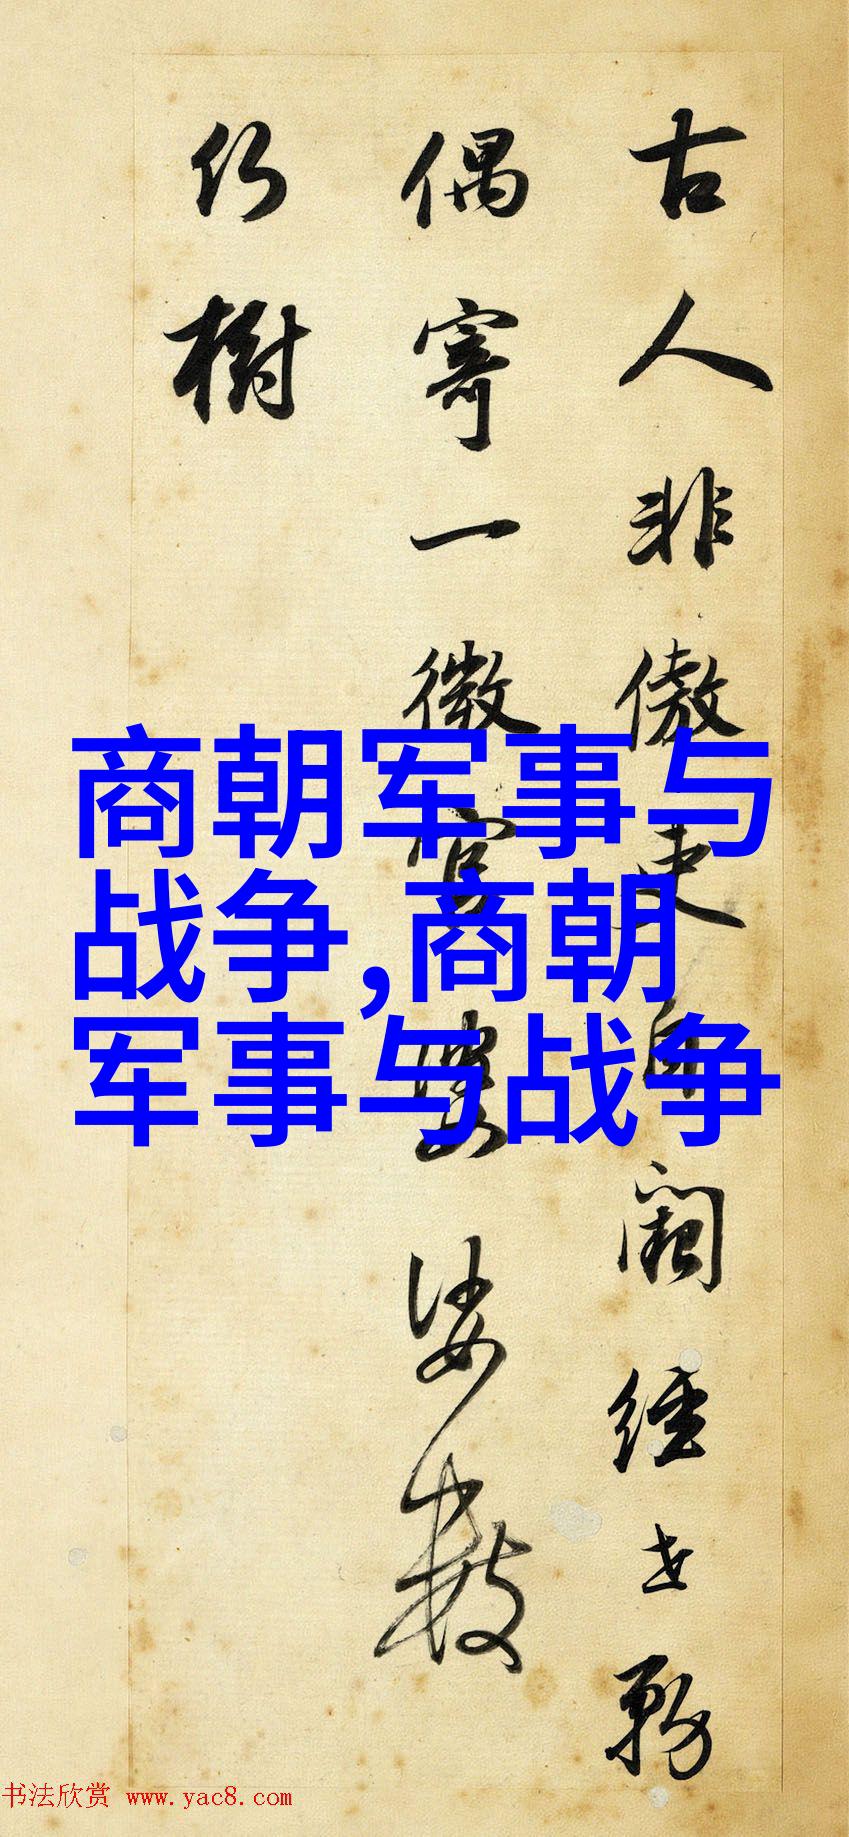 古人非傲吏自闕經世務
偶寄一微官婆娑數
樹
商朝军事与
战争,商朝
军事与战争
书法欣赏 www.yac8.com